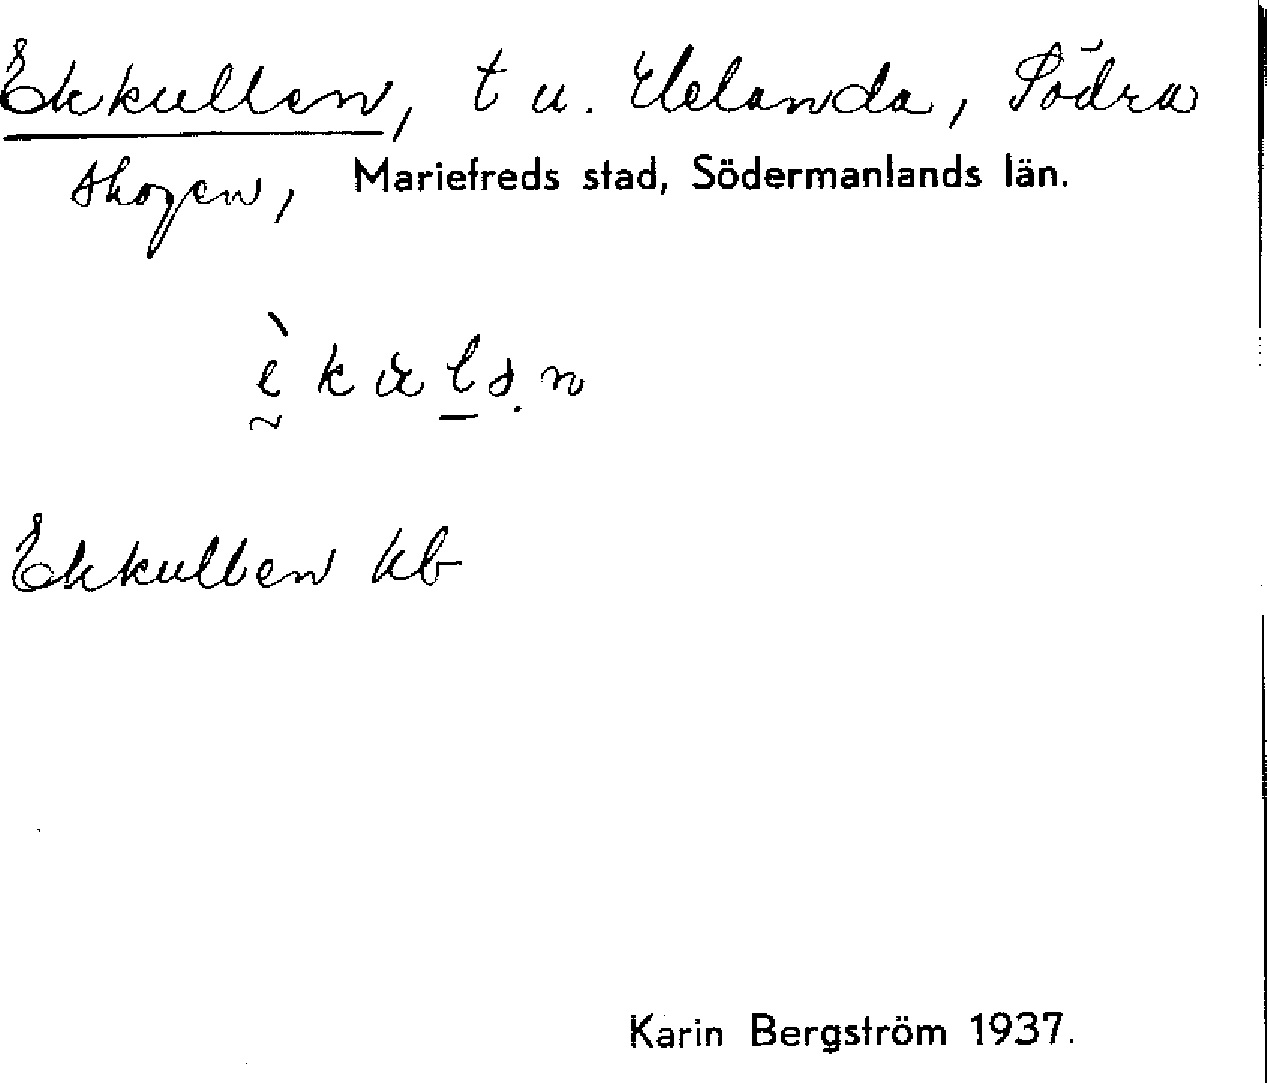 Ekkullen, t u. Elelanda, Södra
skogen, Mariefreds stad, Södermanlands län.
Ekkullen kb
Karin Bergström 1937.